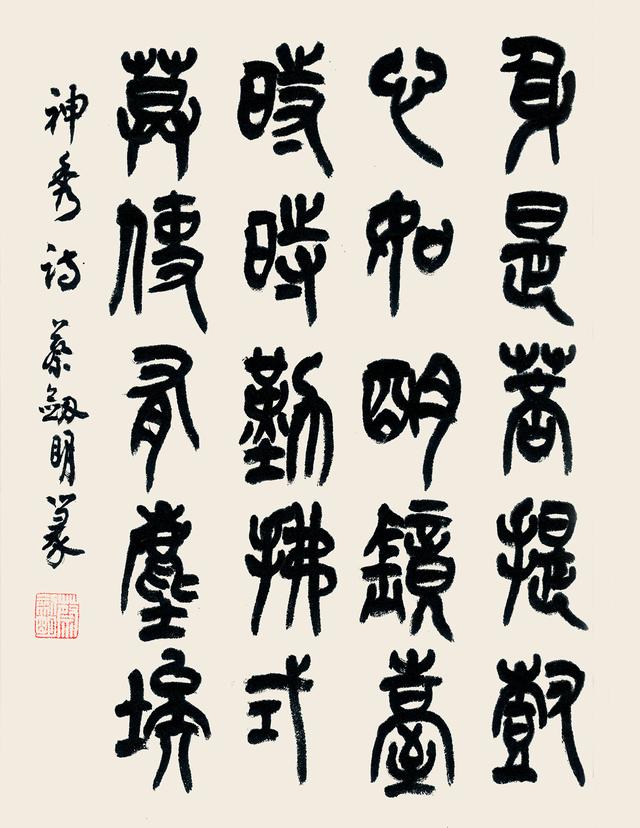 身是菩提樹
心如明鏡臺
時時勤拂式
莫使有塵埃
神秀詩 蔡劍明篆